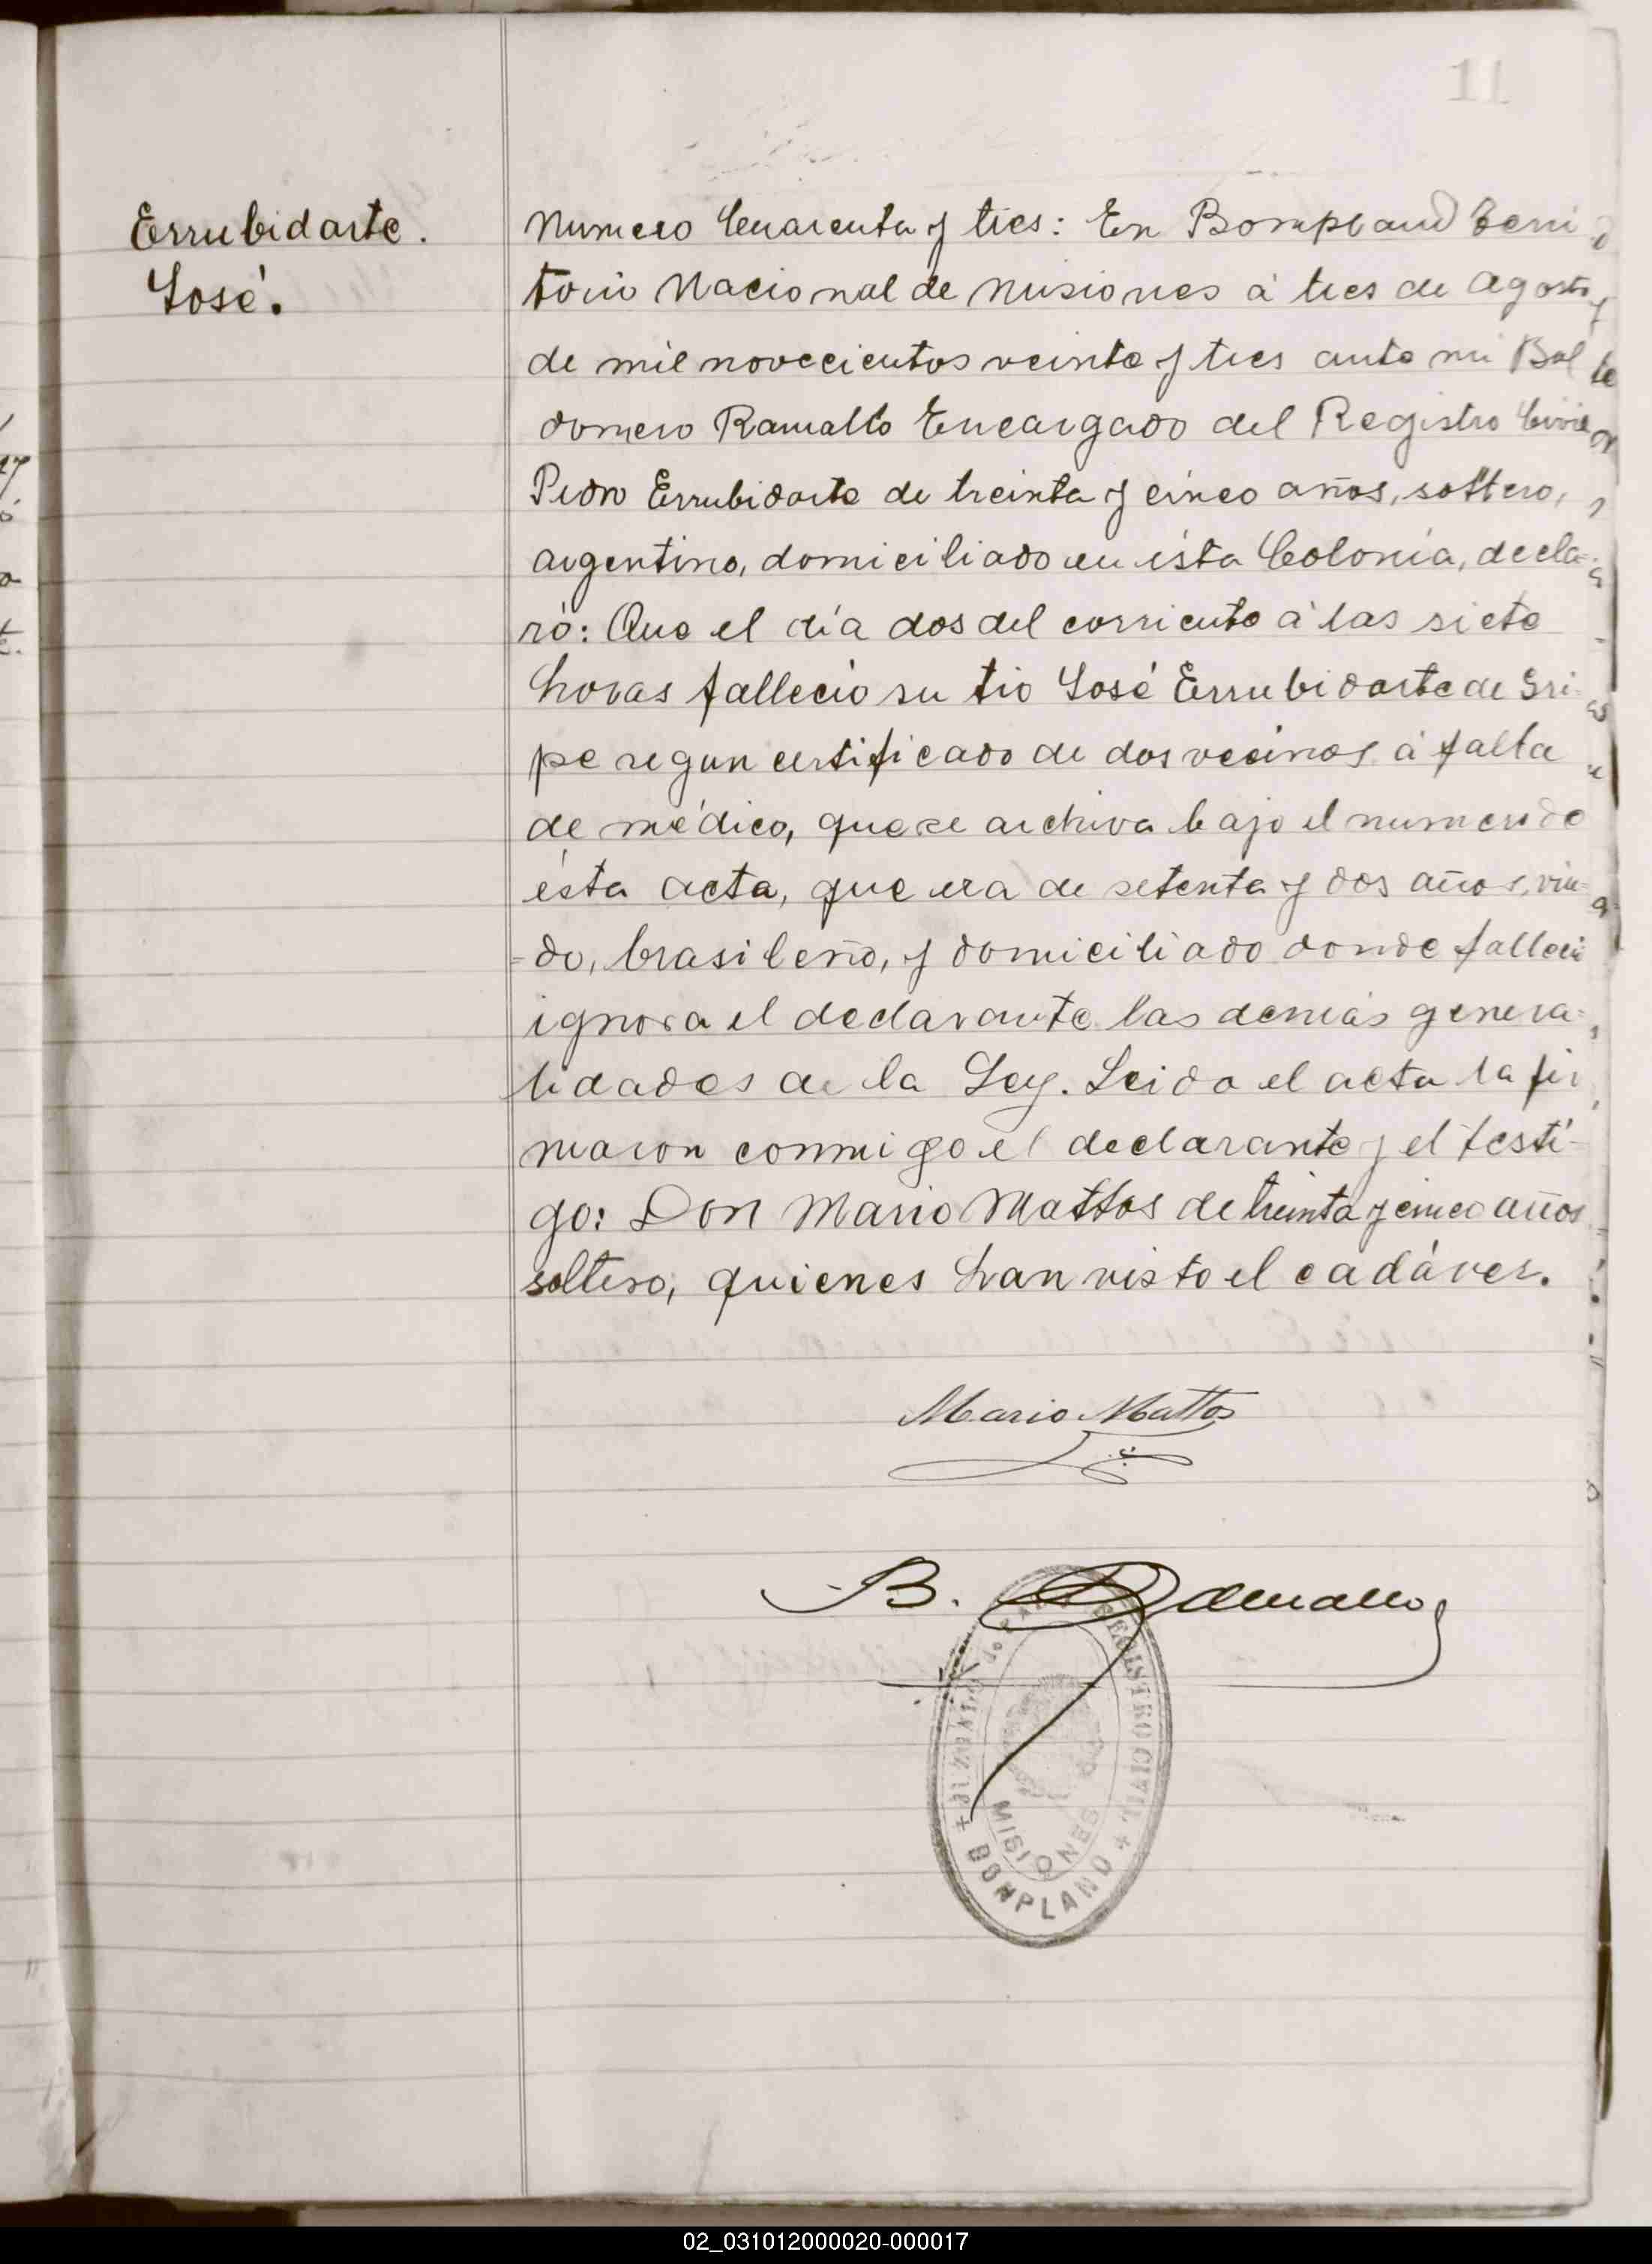 11
Errubidarte.
José.
Numero Cuarenta y tres: En Bompland Terri
torio Nacional de Misiones á tres de Agosto
de mil novecientos veinte y tres ante mi Bal
domero Ramallo Encargado del Registro Civil
Pedro Errubidarte de treinta y cinco años, soltero,
argentino, domiciliado en ésta Colonia, decla-
ró: Que el día dos del corriente á las siete
horas falleció su tio José Errubidarte de Gri-
pe segun certificado de dos vecinos á falta
de médico, que se archiva bajo el numero de
ésta acta, que era de setenta y dos años, viu-
-do, brasileño, y domiciliado donde falleció
ignora el declarante las demás genera-
lidades de la Ley. Leida el acta la fir
maron conmigo el declarante y el testi-
go: Don Mario Mattos de treinta y cinco años
soltero, quienes han visto el cadáver.
Mario Mattos
B. Ramallo
REGISTRO CIVIL
MISIONES
BONPLAND
02_031012000020-000017